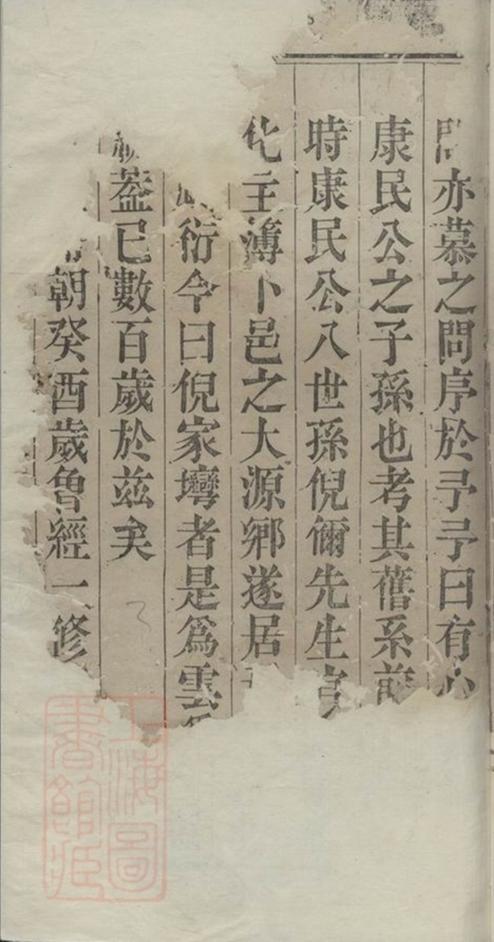 亦慕之問序於予予曰有心
康民公之子孫也考其舊系前
時康民公八世孫倪儞先生宦
化主簿卜邑之大源鄉遂居
衍今曰倪家塆者是爲雲
蓋已數百歲於兹矣
朝癸酉歲魯經一修
上海圖書館藏